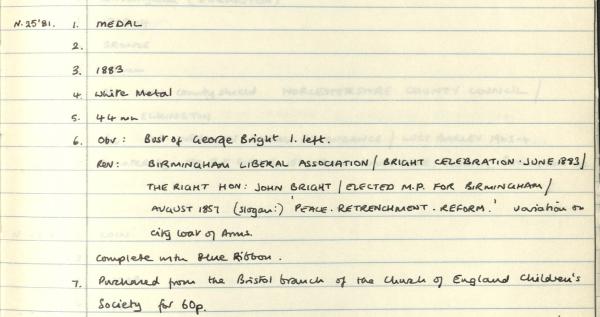 N.25'81. 1. MEDAL
2.
3. 1883
4. White Metal
5. 44 mm
6. Obv: Bust of George Bright l. left.
Rev: BIRMINGHAM LIBERAL ASSOCIATION / BRIGHT CELEBRATION · JUNE 1883 /
THE RIGHT HON: JOHN BRIGHT / ELECTED M.P. FOR BIRMINGHAM /
AUGUST 1857 (slogan:) 'PEACE · RETRENCHMENT · REFORM.' variation on
city Coat of Arms.
Complete with Blue Ribbon.
7. Purchased from the Bristol branch of the Church of England Children's
Society for 60p.